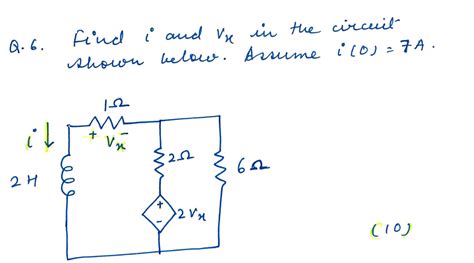 Q.6. Find i and Vx in the circuit
shown below. Assume i(0) = 7A.
1Ω
i ↓
+ Vx -
2Ω
6Ω
2H
+
-
2Vx
(10)